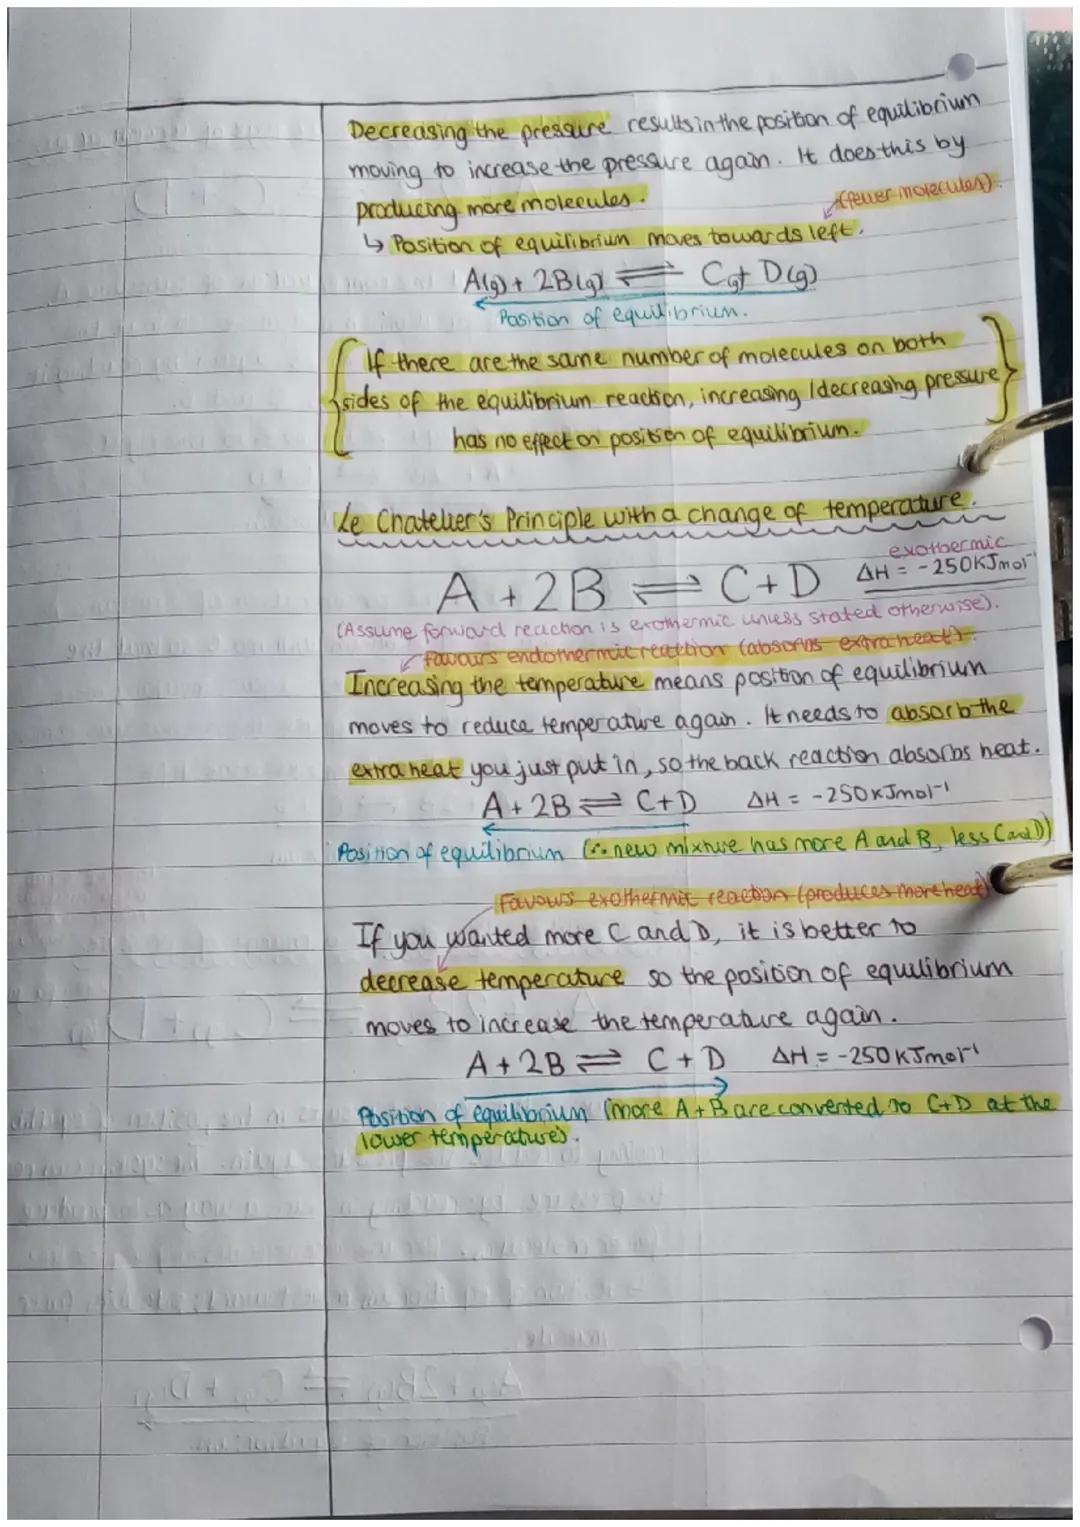 Decreasing the pressure results in the position of equilibrium
moving to increase the pressure again. It does this by
producing more molecules.
(fewer molecules).
↳ Position of equilibrium moves towards left.
A(g) + 2B(g) ⇌ C(g) + D(g)
Position of equilibrium.
If there are the same number of molecules on both
sides of the equilibrium reaction, increasing/decreasing pressure
has no effect on position of equilibrium.
Le Chatelier's Principle with a change of temperature.
exothermic
A + 2B ⇌ C + D ΔH = -250KJmol⁻¹
(Assume forward reaction is exothermic unless stated otherwise).
Favours endothermic reaction (absorbs extra heat).
Increasing the temperature means position of equilibrium
moves to reduce temperature again. It needs to absorb the
extra heat you just put in, so the back reaction absorbs heat.
A + 2B ⇌ C+D ΔH = -250KJmol⁻¹
Position of equilibrium (∴ new mixture has more A and B, less C and D)
Favours exothermic reaction (produces more heat)
If you wanted more C and D, it is better to
decrease temperature so the position of equilibrium
moves to increase the temperature again.
A + 2B ⇌ C + D ΔH = -250KJmol⁻¹
Position of equilibrium (more A + B are converted to C+D at the
lower temperature).